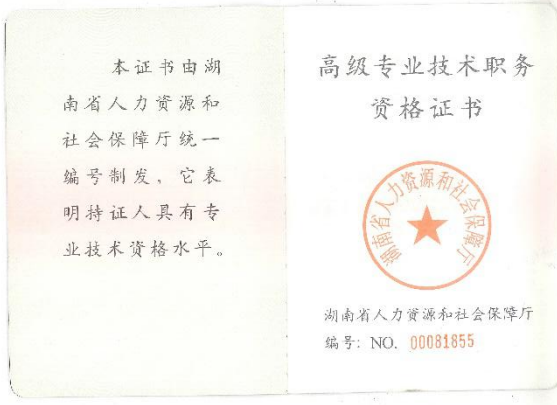 本证书由湖
南省人力资源和
社会保障厅统一
编号制发，它表
明持证人具有专
业技术资格水平。
高级专业技术职务
资格证书
湖南省人力资源和社会保障厅
湖南省人力资源和社会保障厅
编号：NO. 00081855